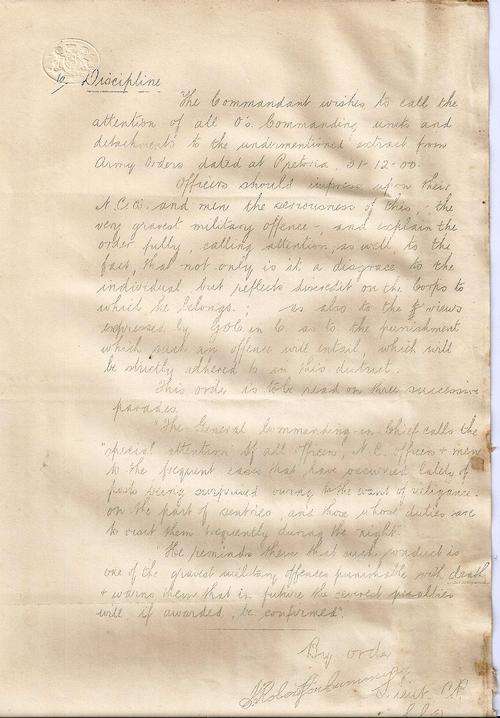 10/ Discipline
The Commandant wishes to call the
attention of all O's. Commanding units and
detachments to the undermentioned extract from
Army Orders dated at Pretoria, 31-12-00.
Officers should impress upon their
N.C.O. and men the seriousness of this, the
very gravest military offence -, and explain the
order fully, calling attention, as well, to the
fact, that not only is it a disgrace to the
individual but reflects discredit on the Corps to
which he belongs. : as also to the views
expressed by GOC in C. as to the punishment
which such an offence will entail, which will
be strictly adhered to in this district.
This order is to be read on three successive
parades.
"The General Commanding-in-Chief calls the
"special attention of all officers, N.C. Officers + men
to the frequent cases that have occurred lately of
posts being surprised owing to the want of vigilance.
on the part of sentries, and those whose duties are
to visit them frequently during the night.
"He reminds them that such conduct is
one of the gravest military offences punishable with death
+ warns them that in future the severest penalties
will, if awarded, be confirmed".
By order
Lieut.